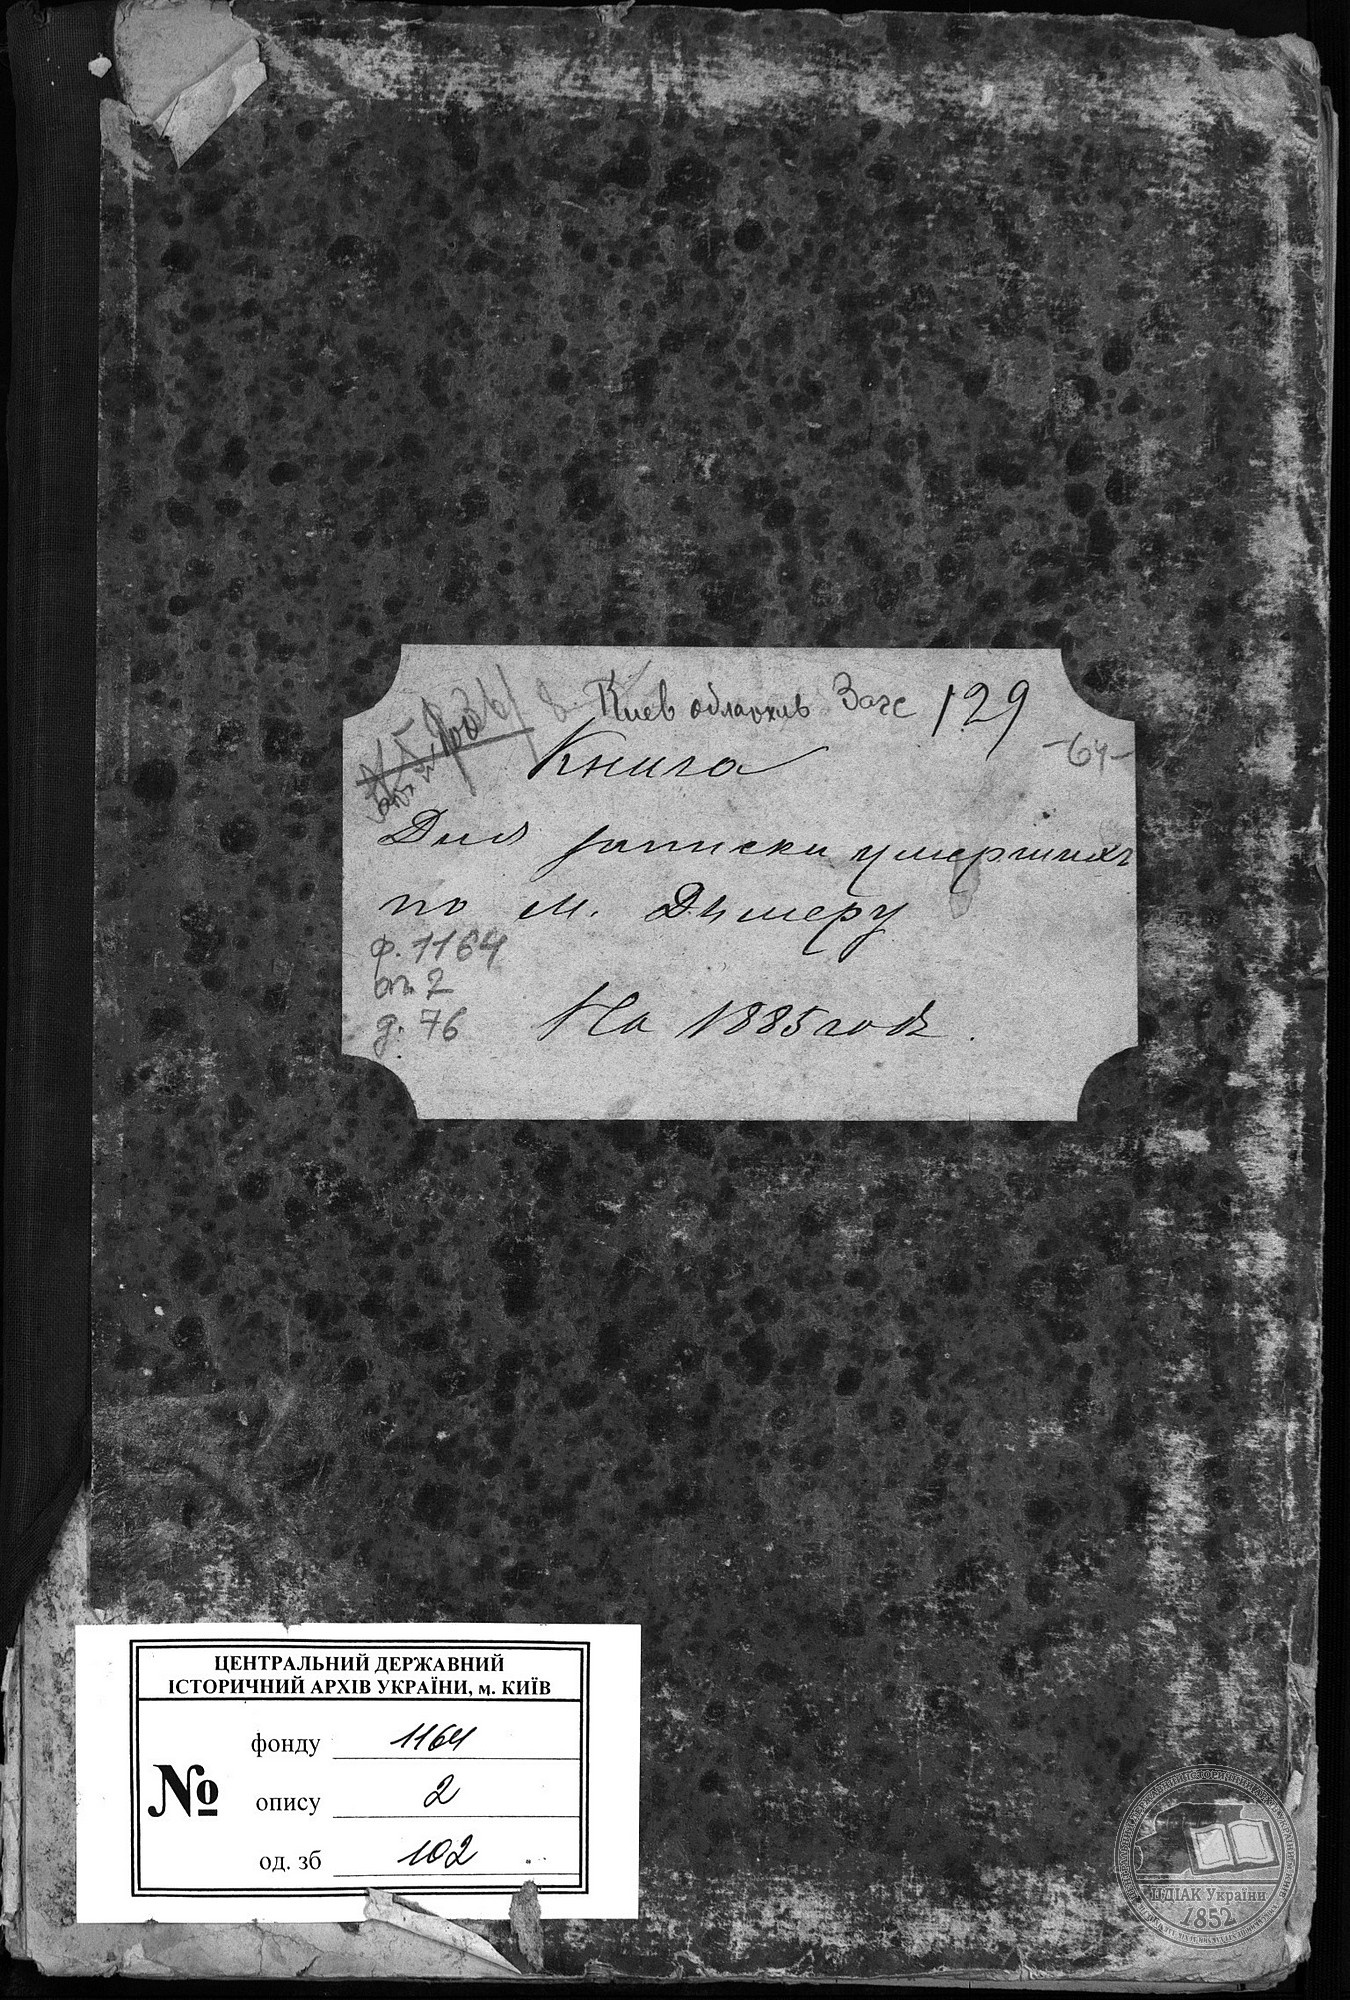 Киев облархив Загс 129
-64-
Книга
Для записки умершихъ
по м. Дымеру
ф. 1164
оп. 2
д. 76
На 1885 годъ.
ЦЕНТРАЛЬНИЙ ДЕРЖАВНИЙ
ІСТОРИЧНИЙ АРХІВ УКРАЇНИ, м. КИЇВ
№
фонду 1164
опису 2
од. зб 102
ЦДІАК України
1852